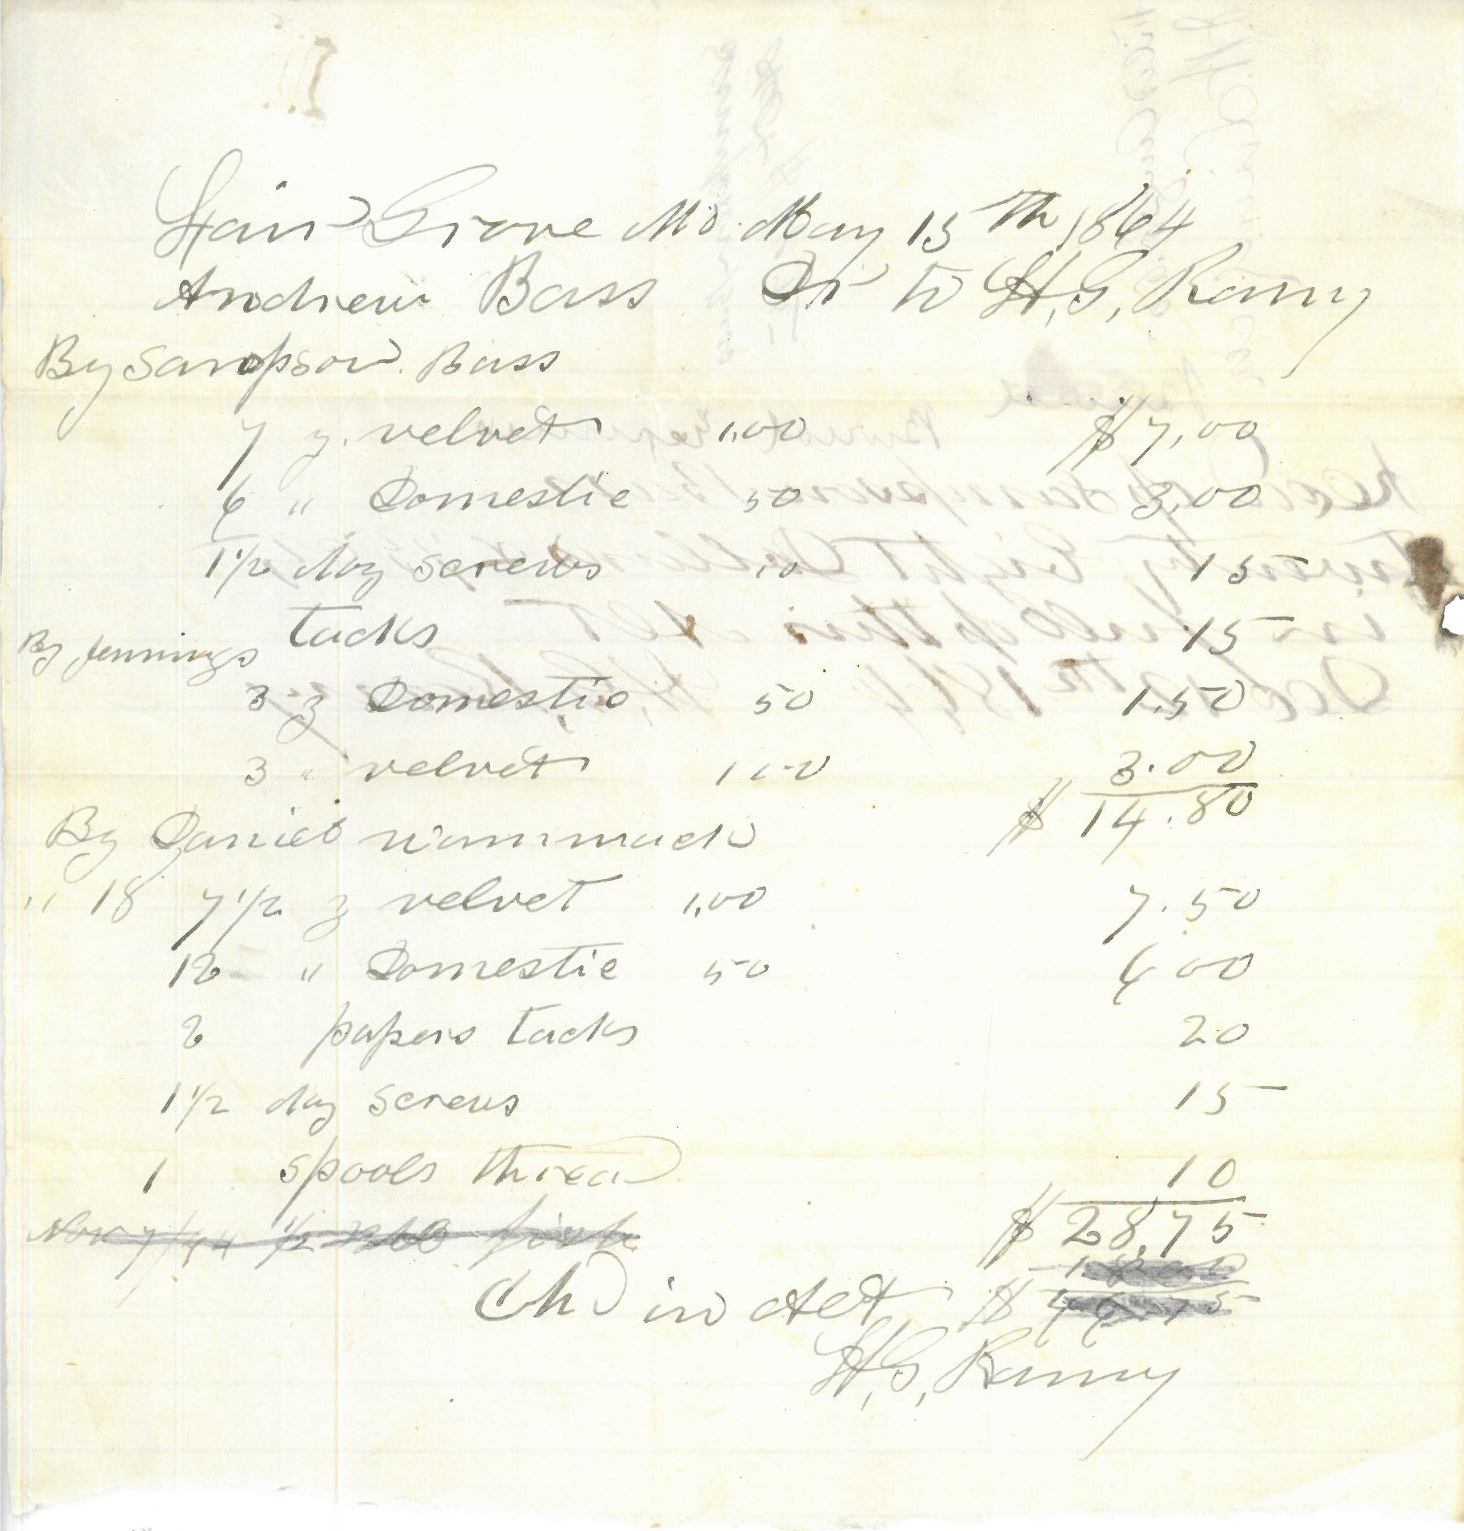 Fair Grove Mo. May 15th 1864
Andrew Bass Dr to H, G, Ramy
By Sampson. Bass
7 y. velvet 1.00 $7,00
6 " Domestic 50 3,00
1 1/2 doz screws 10 15
tacks 15
By Jennings
3 y Domestic 50 1.50
3 " velvet 100 3.00
$ 14.80
By Daniel wammack
" 18 7 1/2 y velvet 1,00 7.50
12 " Domestic 50 6 00
2 papers tacks 20
1 1/2 doz screws 15
1 spools thread 10
Nov 7/64 1/2 $ 28,75
Chd in Act $ 46.75
H, G, Ramy